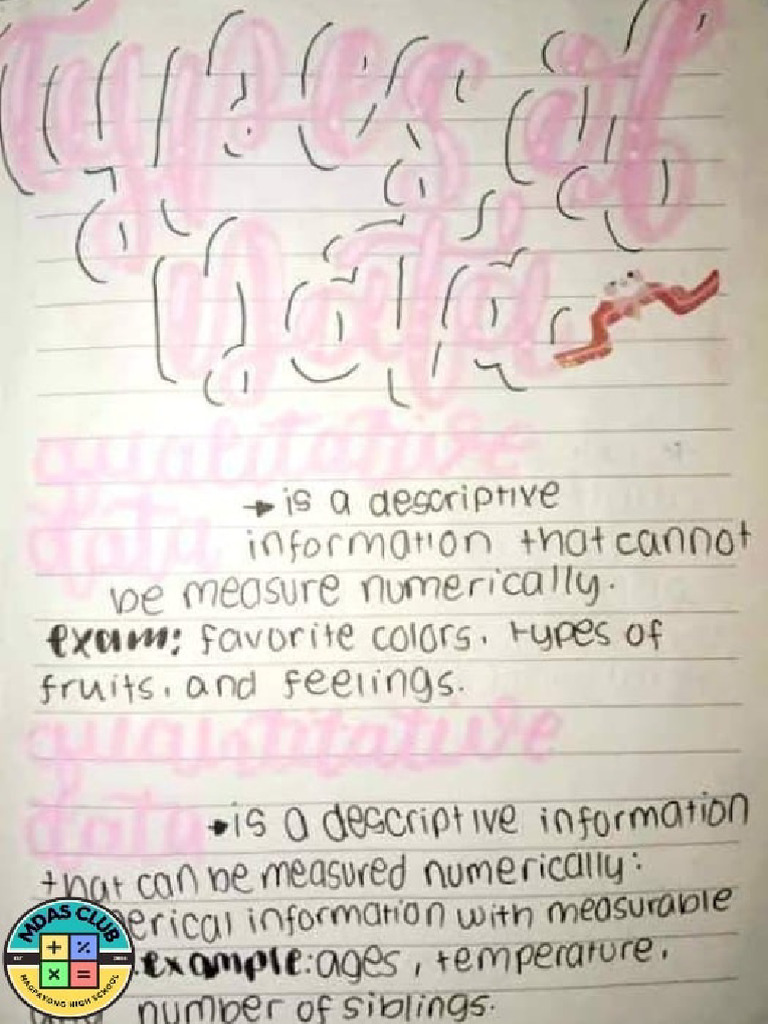 Types of
Data
qualitative
data → is a descriptive
information that cannot
be measure numerically.
exam: favorite colors, types of
fruits, and feelings.
quantitative
data → is a descriptive information
that can be measured numerically:
erical information with measurable
example: ages, temperature,
number of siblings.
MDAS CLUB
MAGPAYONG HIGH SCHOOL